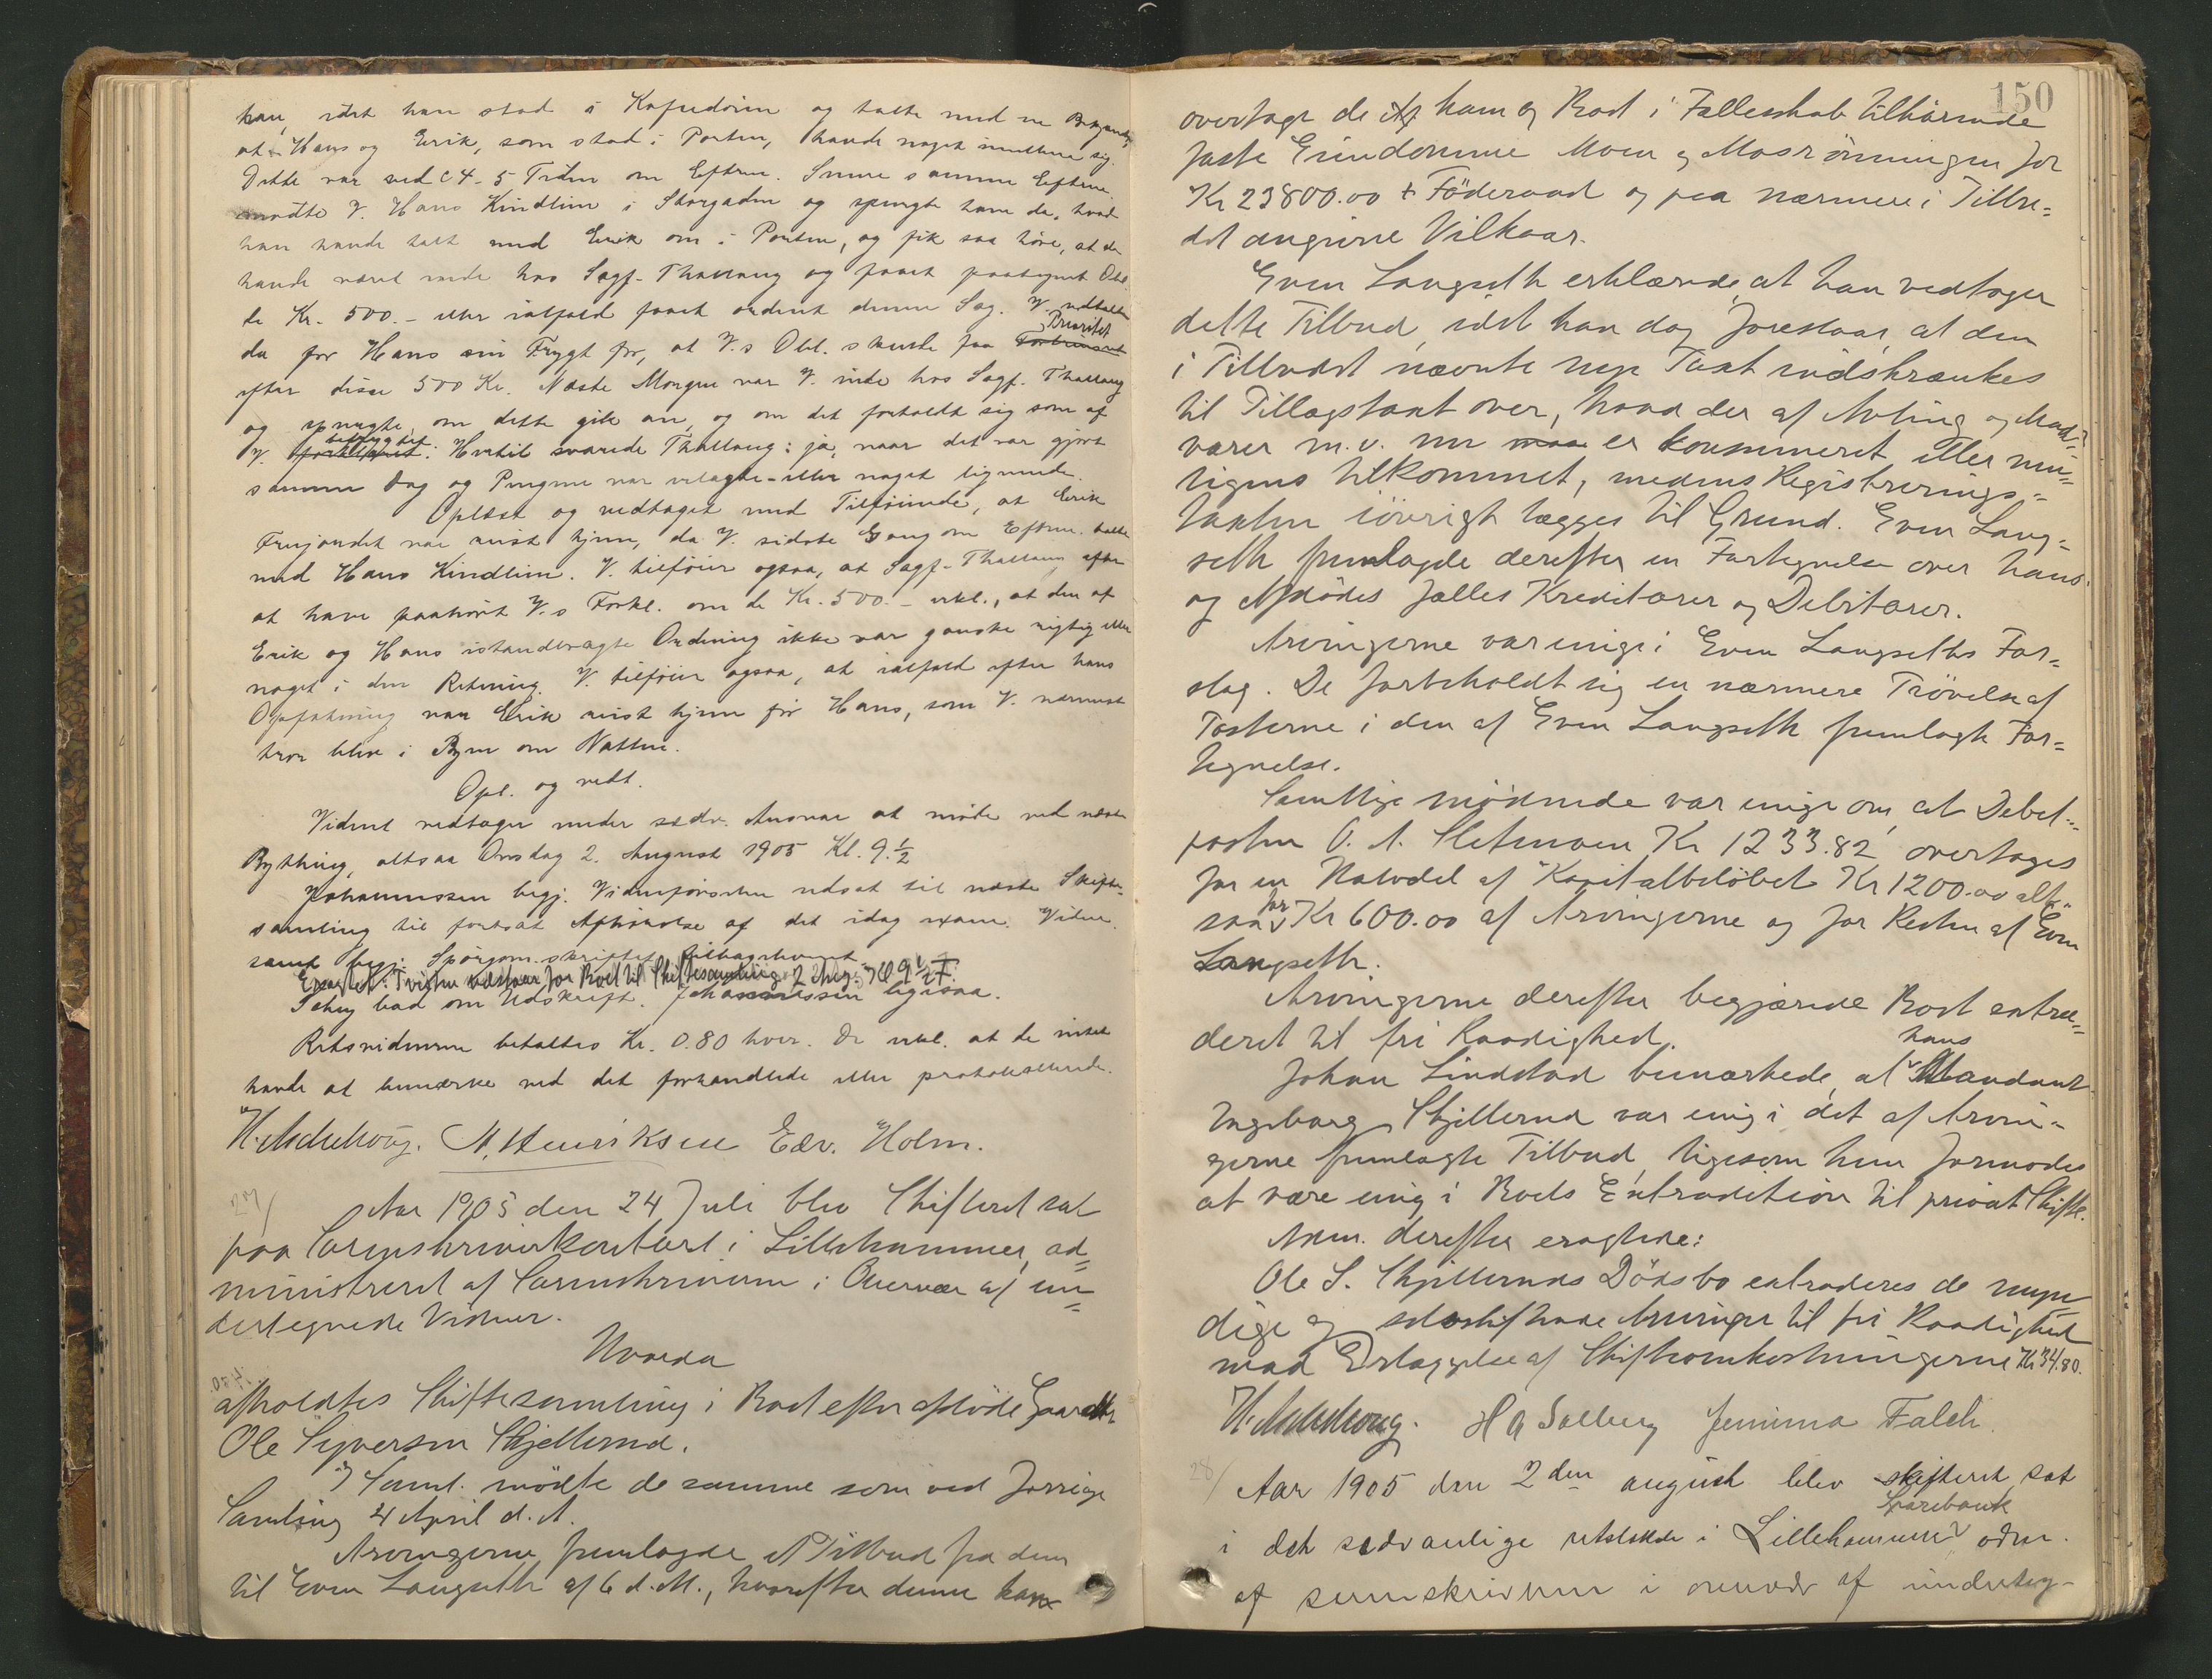 han, idet han stod i Kafedøren og talte med en
at Hans og Erik, som stod i Porten, havde noget imellem sig.
Dette var ved c 4-5 Tiden om Efterm. Senere samme Efterm.
mødte V. Hans Kindlien i Storgaden og spurgte ham da, hvad
han havde talt med Erik om i Porten, og fik saa høre, at de
havde været inde hos Sagf. Thallaug og faaet paategnet Obl.
de Kr. 500.- eller ialfald faaet ordent denne Sag. V. udtalte
Prioritet
da for Hans sin Frygt for, at V.s Obl. skulde faa
efter disse 500 Kr. Næste Morgen var V. inde hos Sagf. Thallaug
og spurgte, om dette gik an, og om det forholdt sig som af
V. befrygtet. Hertil svarede Thallaug: ja, naar det var gjort
samme Dag og Pengene var -eller noget lignende.
Oplæst og vedtaget med Tilføiende, at Erik
Frujordet var reist hjem, da V. sidste Gang om Efterm. talte
med Hans Kindlien. V. tilføier ogsaa, at Sagf. Thallaug efter
at have paahørt V.s Forkl. om de Kr. 500.- erkl., at den af
Erik og Hans istandbragte Ordning ikke var ganske rigtig eller
noget i den Retning. V. tilføier ogsaa, at ialfald efter hans
Opfatning var Erik reist hjem før Hans, som V. nærmest
tror blev i Byen om Natten.
Opl. og vedt.
Vidnet vedtager under sædv. Ansvar at møde ved næste
Bything, altsaa Onsdag 2. August 1905 Kl. 9.½
Johannessen begj. Vidneførselen udsat til næste Skifte-
samling til fortsat Afhørelse af det idag exam. Vidne.
samt begj. Spörgsm.skriftet tilbageleveret.
Eragtet: Tvisten udstaar for Boet til Skiftesamling 2 Aug. Kl 9½ F.
Schey bad om Udskrift. Johannessen ligesaa.
Retsvidnerne betaltes Kr. 0.80 hver. De erkl. at de intet
havde at bemærke ved det forhandlede eller protokollerede.
A. Henriksen Edv. Holm.
27/
Aar 1905 den 24 Juli blev Skifteret sat
paa Sorenskriverkontoret i Lillehammer, ad=
ministreret af Sorenskriveren i Overvær af un=
dertegnede Vidner.
Hvorda
afholdtes Skiftesamling i Boet efter afdöde Gaardbr
Ole Syversen Skjellerud.
I Saml. mödte de samme som ved forrige
Samling 4 April d. A.
Arvingerne fremlagde et Tilbud fra dem
til Even Langseth af 6 d. M., hvorefter denne kan
150
overtage de ham og Boet i Fællesskab tilhörende
faste Eiendomme Moen og Mosrönningen for
Kr 23800.00 + Föderaad og paa nærmere i Tilbu=
det angivne Vilkaar.
Even Langseth erklærede, at han vedtager
dette Tilbud, idet han dog foreslaar, at den
i Tilbudet nævnte nye Taxt indskrænkes
til Tillægstaxt over, hvad der af Avling og Mad=
varer m.v. nu er konsumeret eller nu=
tigens tilkommet, medens Registrerings=
taxten iövrigt lægges til Grund. Even Lang=
seth fremlagde derefter en Fortegnelse over hans
og Afdödes fælles Kreditorer og Debitorer.
Arvingerne var enige i Even Langseths For=
slag. De forbeholdt sig en nærmere Prövelse af
Posterne i den af Even Langseth fremlagte For=
tegnelse.
Samtlige mödende var enige om, at Debet=
posten O. A. Sletmoen Kr 1233.82, overtages
for en Halvdel af Kapitalbelöbet Kr 1200.00 alt=
saa for Kr 600.00 af Arvingerne og for Resten af Even
Langseth.
Arvingerne derefter begjærede Boet extra=
deret til fri Raadighed.
Johan Lindstad bemærkede, at hans Mandant
Ingeborg Skjellerud var enig i det af Arvin=
gerne fremlagte Tilbud, ligesom hun formodes
at være enig i Boets Extradition til privat Skifte.
Adm. derefter eragtede:
Ole S. Skjelleruds Dödsbo extraderes de myn=
dige og selvskiftende Arvinger til fri Raadighed
mod Erlæggelse af Skifteomkostningerne Kr 34.80.
H A Solberg Jemima Falch.
28/
Aar 1905 den 2den august blev skifteret sat
i det sædvanlige retslokale i Lillehammer Sparebank adm.
af sorenskriveren i overvær af underteg-